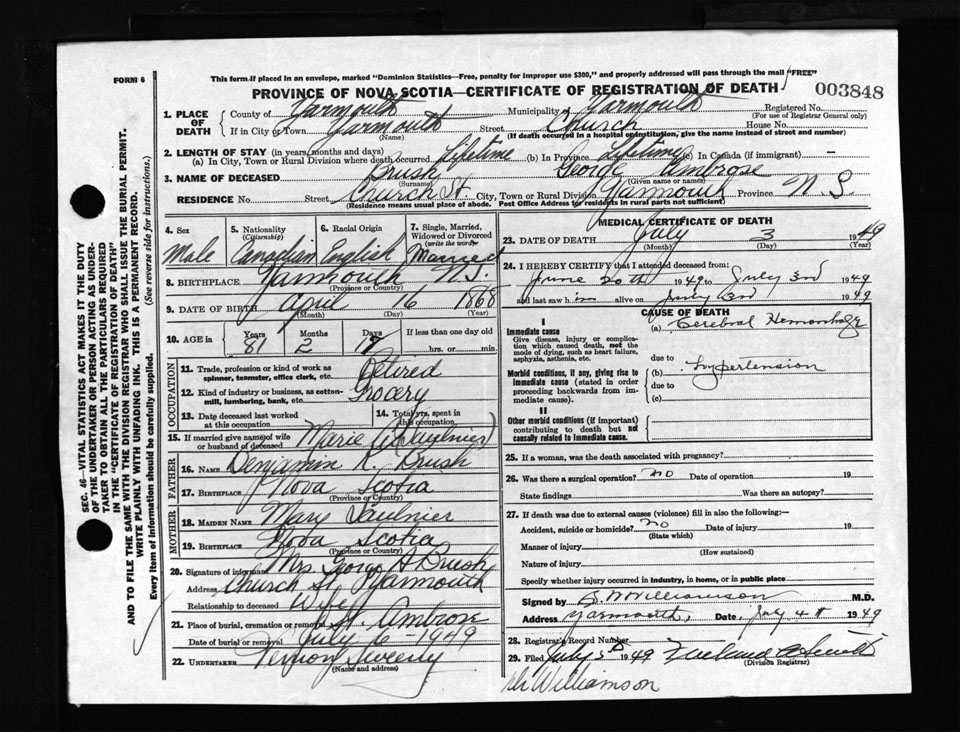 This form if placed in an envelope, marked "Dominion Statistics—Free, penalty for improper use $300," and properly addressed will pass through the mail "FREE"
FORM 6
PROVINCE OF NOVA SCOTIA—CERTIFICATE OF REGISTRATION OF DEATH
003848
1. PLACE OF DEATH County of Yarmouth Municipality of Yarmouth Registered No.
(For use of Registrar General only)
If in City or Town Yarmouth Street Church House No.
(Name) (If death occurred in a hospital or institution, give the name instead of street and number)
2. LENGTH OF STAY (in years, months and days)
(a) In City, Town or Rural Division where death occurred Lifetime (b) In Province Lifetime (c) In Canada (if immigrant) —
3. NAME OF DECEASED Brush George Ambrose
(Surname) (Given name or names)
RESIDENCE No. Street Church St. City, Town or Rural Division Yarmouth Province N.S.
(Residence means usual place of abode. Post Office Address for residents in rural parts not sufficient)
4. Sex 5. Nationality (Citizenship) 6. Racial Origin 7. Single, Married, Widowed or Divorced (write the word)
Male Canadian English Married
8. BIRTHPLACE Yarmouth N.S.
(Province or Country)
9. DATE OF BIRTH April 16 1868
(Month) (Day) (Year)
10. AGE in Years Months Days If less than one day old
81 2 hrs. or min.
OCCUPATION
11. Trade, profession or kind of work as spinner, teamster, office clerk, etc. Retired
12. Kind of industry or business, as cotton-mill, lumbering, bank, etc. Grocery
13. Date deceased last worked at this occupation
14. Total yrs. spent in this occupation
15. If married give name of wife or husband of deceased Marie (Saulnier)
FATHER
16. NAME Benjamin K. Brush
17. BIRTHPLACE Nova Scotia
(Province or Country)
MOTHER
18. MAIDEN NAME Mary Saulnier
19. BIRTHPLACE Nova Scotia
(Province or Country)
20. Signature of informant Mrs. George A Brush
Address Church St, Yarmouth
Relationship to deceased Wife
21. Place of burial, cremation or removal St. Ambrose
Date of burial or removal July 6 - 1949
22. UNDERTAKER Vernon Sweeny
(Name and address)
MEDICAL CERTIFICATE OF DEATH
23. DATE OF DEATH July 3 1949
(Month) (Day) (Year)
24. I HEREBY CERTIFY that I attended deceased from:
June 20th 1949 to July 3rd 1949
and last saw him alive on July 3rd 1949
CAUSE OF DEATH
I
Immediate cause (a) Cerebral Hemorrhage
Give disease, injury or complication which caused death, not the mode of dying, such as heart failure, asphyxia, asthenia, etc.
due to
Morbid conditions, if any, giving rise to immediate cause (stated in order proceeding backwards from immediate cause).
(b) hypertension
due to
(c)
II
Other morbid conditions (if important) contributing to death but not causally related to immediate cause.
25. If a woman, was the death associated with pregnancy?
26. Was there a surgical operation? no Date of operation 19
State findings Was there an autopsy?
27. If death was due to external causes (violence) fill in also the following:—
Accident, suicide or homicide? no Date of injury 19
(State which)
Manner of injury
(How sustained)
Nature of injury
Specify whether injury occurred in industry, in home, or in public place
Signed by Williamson M.D.
Address Yarmouth, Date, July 4th 1949
28. Registrar's Record Number
29. Filed July 5th 1949
(Division Registrar)
Dr Williamson
SEC. 46—VITAL STATISTICS ACT MAKES IT THE DUTY
OF THE UNDERTAKER OR PERSON ACTING AS UNDER-
TAKER TO OBTAIN ALL THE PARTICULARS REQUIRED
IN THE "CERTIFICATE OF REGISTRATION OF DEATH"
AND TO FILE THE SAME WITH THE DIVISION REGISTRAR WHO SHALL ISSUE THE BURIAL PERMIT.
WRITE PLAINLY WITH UNFADING INK. THIS IS A PERMANENT RECORD.
Every item of information should be carefully supplied. (See reverse side for instructions.)